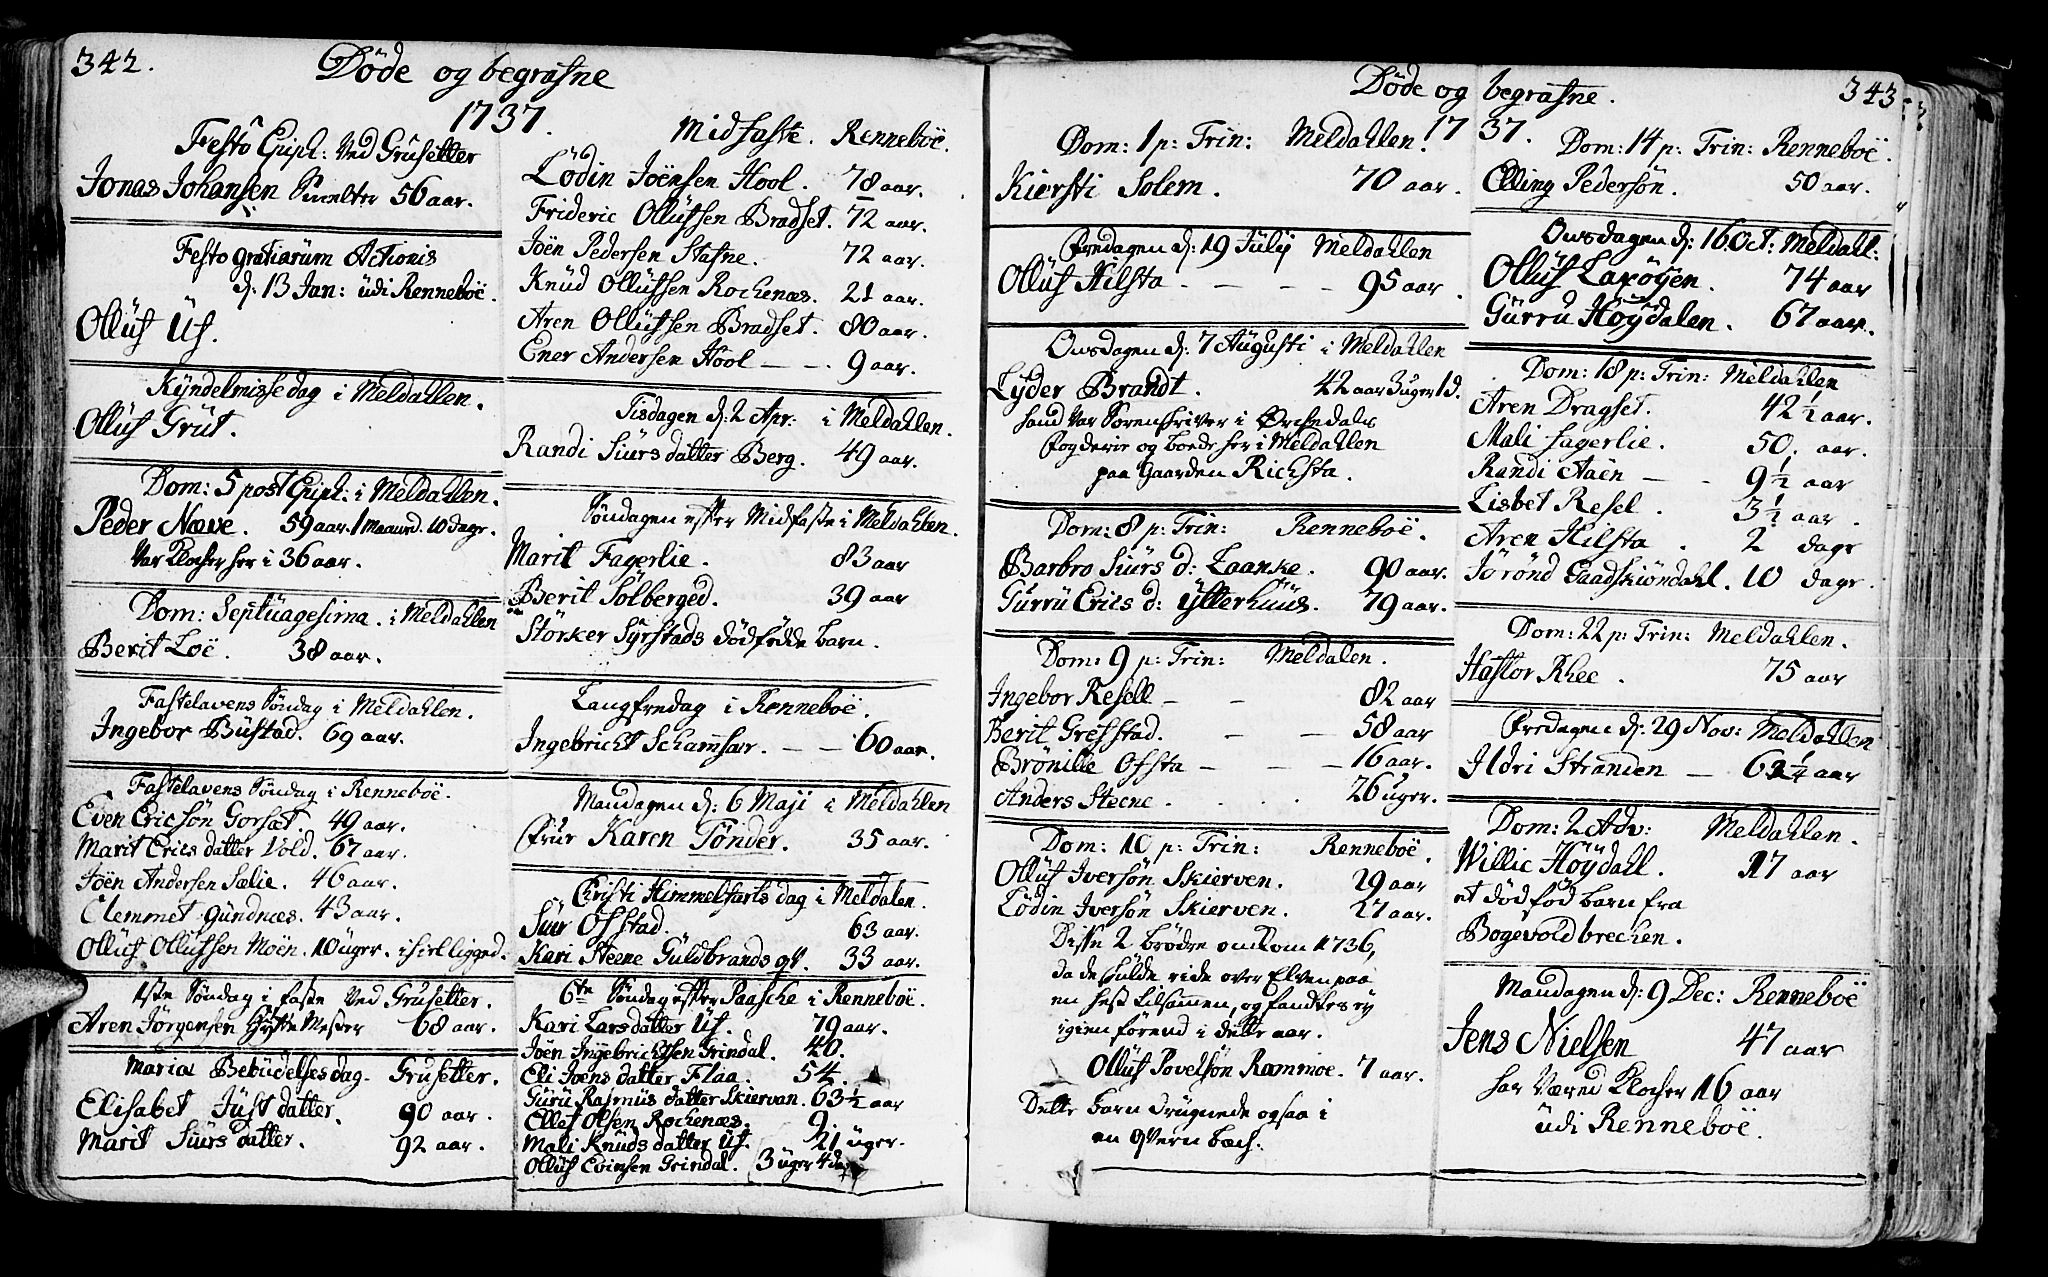 342.
Döde og begrafne
1737.
Festo Epiph: Ved Grusetter
Jonas Johansen Smelter 56 aar.
Festo gratiarum Actionis
d: 13 Jan: udi Renneboe.
Olluf Uf.
Kyndelmissedag i Meldahlen.
Olluf Grut.
Dom: 5 post Epiph: i Meldahlen.
Peder Næve. 59 aar. 1 Maaned. 10 dage.
Var Klocker her i 36 aar.
Dom: Septuagesima. i Meldahlen
Berit Loë. 38 aar.
Fastelavens Söndag i Meldahlen.
Ingebor Bustad. 69 aar.
Fastelavens Söndag i Renneboë.
Even Ericsön Gorsæt 49 aar.
Marit Ericsdatter Vold. 67 aar.
Joën Andersen Sælie. 40 aar.
Clemmet Gundnæs. 43 aar.
Olluf Ollufsen Moën. 10 uger. ihielligged.
1ste Söndag i faste Ved Grusetter.
Aren Jörgensen Hytte Mester 68 aar.
Mariæ Bebudelses dag. Grusetter.
Elisabet Justdatter. 90 aar.
Marit Siursdatter. 92 aar.
Midfaste. Renneboë.
Lödin Joënsen Hool. 78 aar.
Frideric Ollufsen Bradset. 72 aar.
Joën Pedersen Stafne. 72 aar.
Knud Ollufsen Rockenæs. 21 aar.
Aren Ollufsen Bradset. 80 aar.
Ener Andersen Hool — — 9 aar.
Tisdagen d: 2 Apr: i Meldahlen.
Randi Siurs datter Berg. 49 aar.
Söndagen efter Midfaste i Meldahlen.
Marit Fagerlie. 83 aar
Berit Solberged. 39 aar
Störker Syrstads dödfödde barn.
Langfredag i Renneboë.
Ingebricht Schamfar. — — 60 aar.
Mandagen d: 6 Maji i Meldahlen
Frue Karen Tönder. 35 aar.
Christi Himmelfarts dag i Meldalen.
Siur Ofstad. 63 aar.
Kari Steene Guldbrands qv. 33 aar.
6te Söndag efter Paasche i Renneboë.
Kari Larsdatter Uf. 79 aar.
Joën Ingebrichtsen Grindal. 40.
Eli Joensdatter Flaa. 54.
Guru Rasmus datter Skiervan. 63½ aar
Ellef Olsen Rockenæs. 9.
Mali Knuds datter Uf. 21 uger.
Olluf Evensen Grindal. 3 uger 4 dage
Döde og begrafne. 343
1737.
Dom: 1 p: Trin: Meldahlen.
Kiersti Solem. 70 aar.
Fredagen d: 19 July Meldahlen
Olluf Hilsta — — — 95 aar.
Onsdagen d: 7 Augusti i Meldahlen
Lyder Brandt. 42 aar 3 uger 1 d.
hand Var Sorenskriver i Orchedals
Fogderie og boede her i Meldahlen
paa Gaarden Richsta.
Dom: 8 p: Trin: Renneboë.
Barbro Siurs d: Laanke. 90 aar.
Gurru Erics d: Ytterhuus. 79 aar.
Dom: 9 p: Trin: Meldalen.
Ingebor Resell — — 82 aar
Berit Grefstad. — — 58 aar
Brönille Ofsta — — — 16 aar.
Anders Steene . . . 26 uger.
Dom: 10 p: Trin: Renneboë.
Olluf Iversön Skierven. 29 aar
Lödin Iversön Skierven. 27 aar.
Disse 2 brödre omkom 1736,
da de skulde ride over Elven paa
en hest tilsammen, og fandtes ey
igien förend i dette aar.
Olluf Povelsön Rammoe. 7 aar.
Dette barn drugnede ogsaa i
en qvern bech.
Dom: 14 p: Trin: Renneboë.
Elling Pedersön. 50 aar.
Onsdagen d: 16 Oct: Meldahl:
Olluf Laxöyen. 74 aar
Gurru Höydalen. 67 aar.
Dom: 18 p: Trin: Meldahlen
Aren Dragset. 42½ aar.
Mali Fagerlie. 50. aar.
Randi Aaën — — 9½ aar
Lisbet Resel. 3½ aar.
Aren Hilsta . 2 dage
Jörönd Gaadskiöndahl. 10 dage.
Dom: 22 p: Trin: Meldahlen.
Haftor Rhee . 75 aar
Fredagen d: 29 Nov: Meldahlen
Ildri Stranden — 62¼ aar
Dom: 2 Adv: Meldahlen.
Willic Höydahl. 17 aar
et död föd barn fra
Bogevoldbrechen.
Mandagen d: 9 Dec: Renneboë
Jens Nielsen 47 aar
har Været Klocker 16 aar
udi Renneboë.